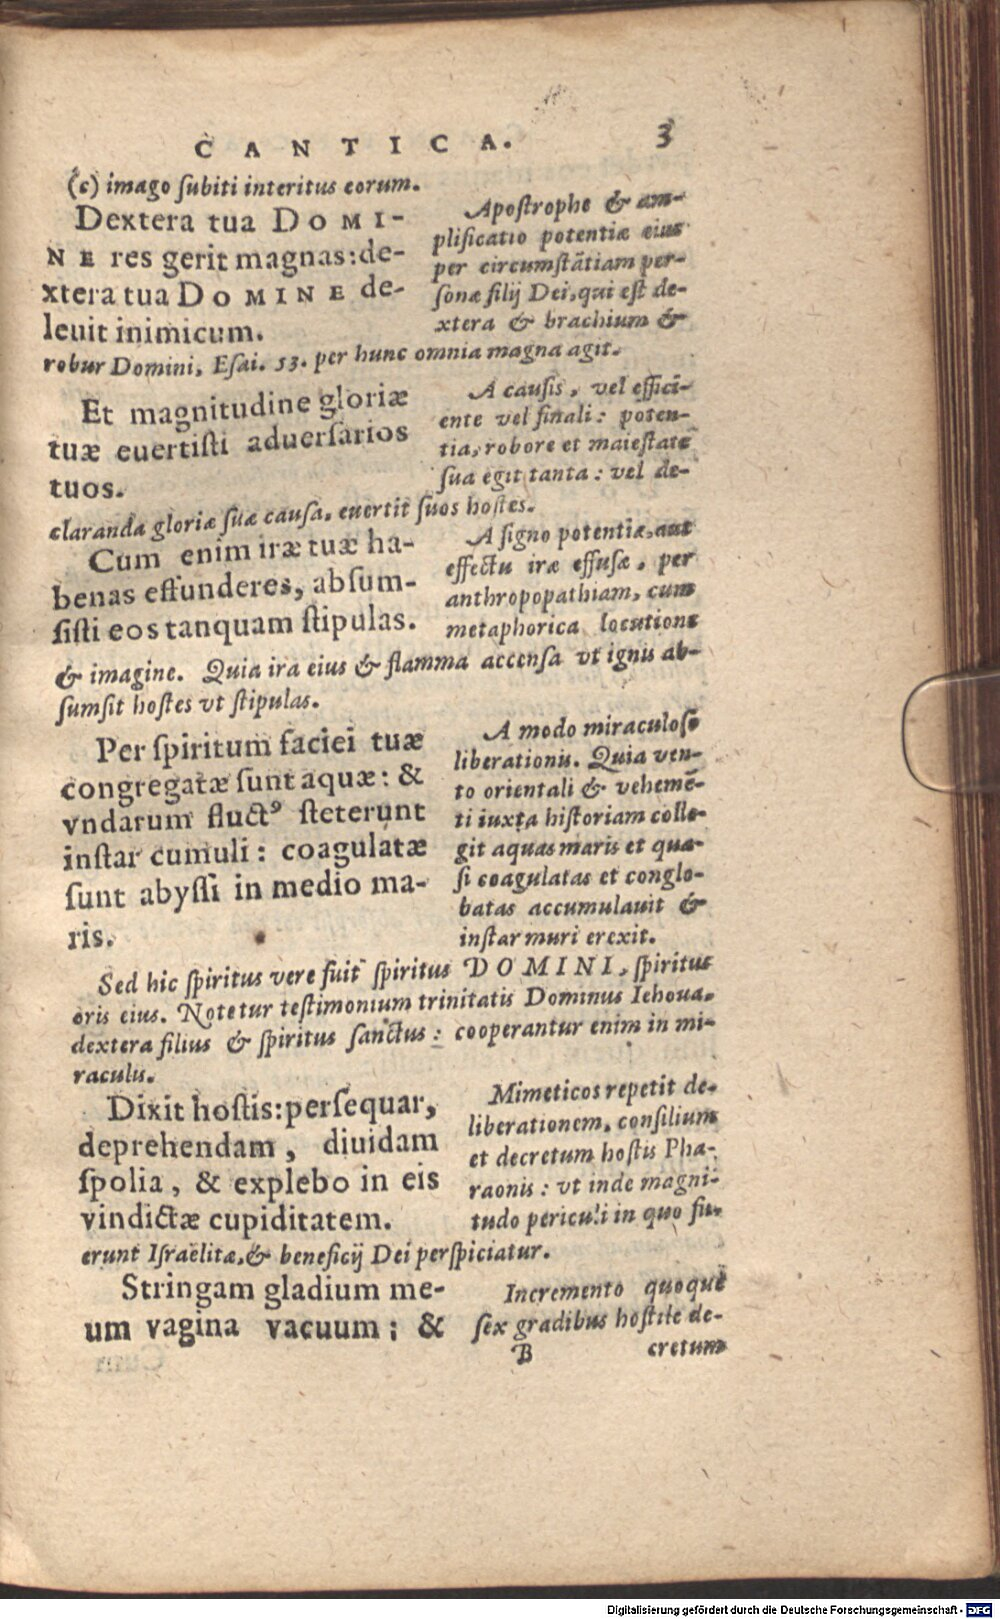 CANTICA. 3
(c) imago ſubiti interitus eorum.
Dextera tua DOMI-
NE res gerit magnas: de-
xtera tua DOMINE de-
leuit inimicum.
Apoſtrophe & am-
plificatio potentiæ eius
per circumſtãtiam per-
ſonæ filij Dei, qui eſt de-
xtera & brachium &
robur Domini, Eſai. 53. per hunc omnia magna agit.
Et magnitudine gloriæ
tuæ euertiſti aduerſarios
tuos.
A cauſis, vel effici-
ente vel finali: poten-
tia, robore et maieſtate
ſua egit tanta: vel de-
claranda gloriæ ſuæ cauſa, euertit ſuos hoſtes.
Cum enim iræ tuæ ha-
benas effunderes, abſum-
ſiſti eos tanquam ſtipulas.
A ſigno potentiæ, aut
effectu iræ effuſæ, per
anthropopathiam, cum
metaphorica locutione
& imagine. Quia ira eius & flamma accenſa vt ignis ab-
ſumſit hoſtes vt ſtipulas.
Per ſpiritum faciei tuæ
congregatæ ſunt aquæ: &
vndarum fluctꝰ ſteterunt
inſtar cumuli: coagulatæ
ſunt abyſſi in medio ma-
ris.
A modo miraculoſo
liberationis. Quia ven-
to orientali & vehemẽ-
ti iuxta hiſtoriam colle-
git aquas maris et qua-
ſi coagulatas et conglo-
batas accumulauit &
inſtar muri erexit.
Sed hic ſpiritus vere fuit ſpiritus DOMINI, ſpiritus
oris eius. Notetur teſtimonium trinitatis Dominus Iehoua,
dextera filius & ſpiritus ſanctus: cooperantur enim in mi-
raculis.
Dixit hoſtis: perſequar,
deprehendam, diuidam
ſpolia, & explebo in eis
vindictæ cupiditatem.
Mimeticos repetit de-
liberationem, conſilium
et decretum hoſtis Pha-
raonis: vt inde magni-
tudo periculi in quo fu-
erunt Iſraëlitæ, & beneficij Dei perſpiciatur.
Stringam gladium me-
um vagina vacuum: &
Incremento quoque
ſex gradibus hoſtile de-
B cretum
Digitalisierung gefördert durch die Deutsche Forschungsgemeinschaft - DFG